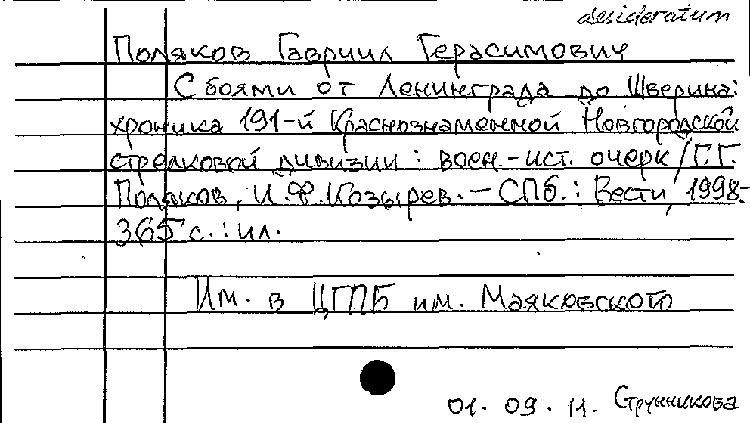 desideratum
Поляков Гавриил Герасимович
С боями от Ленинграда до Шверина:
хроника 191-й Краснознаменной Новгородской
стрелковой дивизии : воен.-ист. очерк / Г.Г.
Поляков, И.Ф. Козырев. – СПб. : Вести, 1998.-
365 с. : ил.
Им. в ЦГПБ им. Маяковского
01. 09. 11. Струнникова